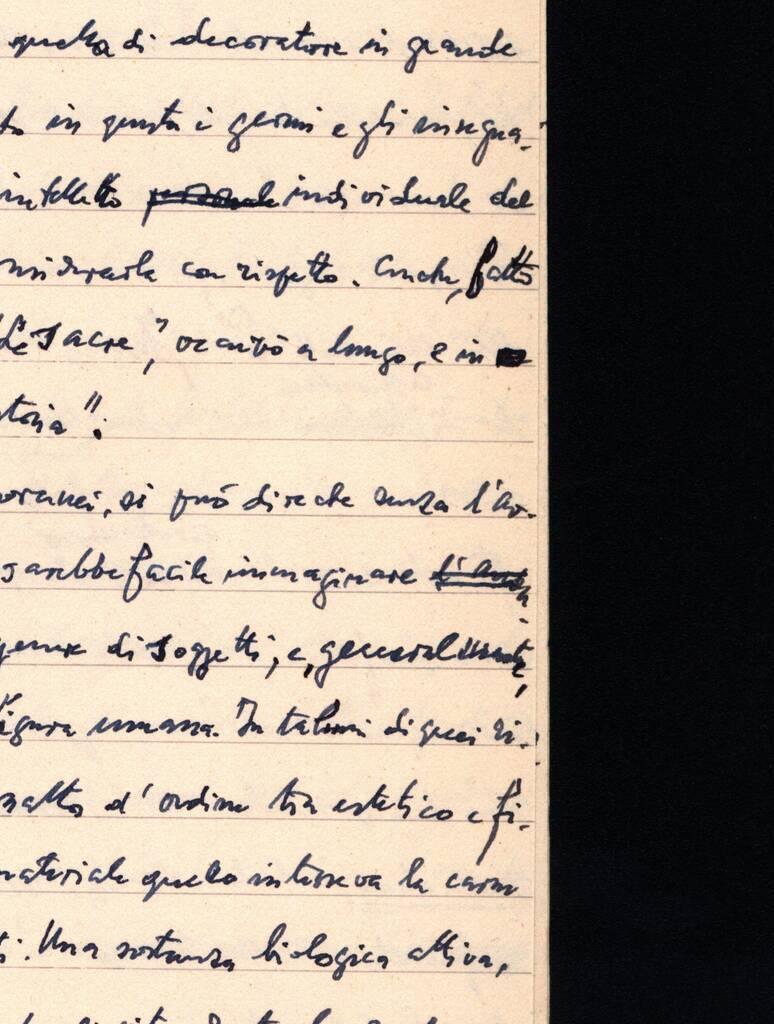 quella di decoratore in grande
to in questa i germi e gli insegna-
intelletto individuale del
considerarla con rispetto. Anche, fatto
"Le Sacre", occupò a lungo, e in
storia":
poranei, si può dire che senza l'av-
sarebbe facile immaginare
genere di soggetti, e, generalmente,
figura umana. In taluni di quei ri-
smalto d'ordine tra estetico e fi-
materiale quello interveva la carne
ti. Una sostanza biologica attiva,